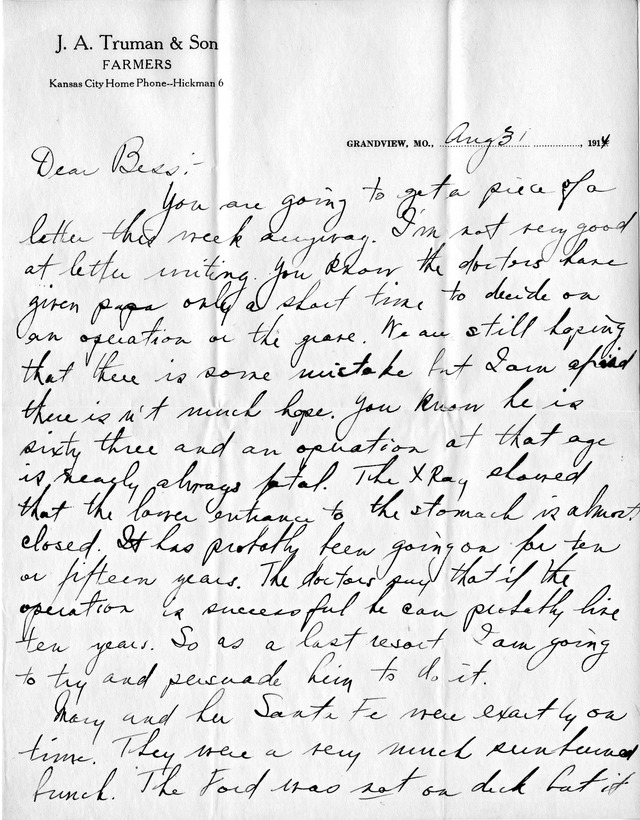 J. A. Truman & Son
FARMERS
Kansas City Home Phone--Hickman 6
GRANDVIEW, MO., Aug 31 1914
Dear Bess:-
You are going to get a piece of a
letter this week anyway. I'm not very good
at letter writing. You know the doctors have
given papa only a short time to decide on
an operation or the grave. We are still hoping
that there is some mistake but I am afraid
there is n't much hope. You know he is
sixty three and an operation at that age
is nearly always fatal. The X Ray showed
that the lower entrance to the stomach is almost
closed. It has probably been going on for ten
or fifteen years. The doctors say that if the
operation is successful he can probably live
ten years. So as a last resort I am going
to try and persuade him to do it.
Mary and her Santa Fe were exactly on
time. They were a very much sunburned
bunch. The Ford was not on deck but it